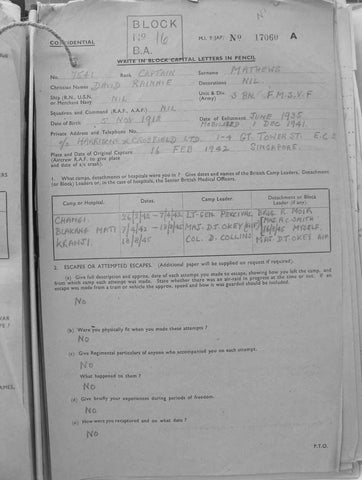 BLOCK
No 16
B.A.
CONFIDENTIAL
M.I. 9/JAP/ No 17060 A
WRITE IN BLOCK CAPITAL LETTERS IN PENCIL
No. 7641 Rank CAPTAIN Surname MATHEWS
Christian Names DAVID Decorations NIL
Ship (R.N., U.S.N. or Merchant Navy) NIL Unit & Div. (Army) 3 BN/ F.M.S.V.F
Squadron and Command (R.A.F., A.A.F.) NIL
Date of Birth 5 NOV 1912 Date of Enlistment JUNE 1935
MOBILISED 1 DEC 1941.
Private Address and Telephone No.
C/o HARRISON & CROSFIELD LTD. 1-4 GT. TOWER ST. E.C.3
Place and Date of Original Capture 16 FEB 1942 SINGAPORE.
(Aircrew R.A.F. to give place and date of a/c crash).
1. What camps, detachments or hospitals were you in? Give dates and names of the British Camp Leaders, Detachment (or Block) Leaders or, in the case of hospitals, the Senior British Medical Officers.
Camp or Hospital. Dates. Camp Leader. Detachment or Block Leader (if any).
CHANGI. LT-GEN PERCIVAL, R. MOIR
BLAKANG MATI MAJ. D.T. OKEY
KRANJI. COL. D. COLLINS MAJ. D.T. OKEY AIF
2. ESCAPES OR ATTEMPTED ESCAPES. (Additional paper will be supplied on request if required).
(a) Give full description and approx. date of each attempt you made to escape, showing how you left the camp, and from which camp each attempt was made. State whether there was an air-raid in progress at the time or not. If an escape was made from a train or vehicle the approx. speed and how it was guarded should be included.
NO
(b) Were you physically fit when you made these attempts?
NO
(c) Give Regimental particulars of anyone who accompanied you on each attempt.
NO
What happened to them?
NO
(d) Give briefly your experiences during periods of freedom.
NO
(e) How were you recaptured and on what date?
NO
P.T.O.